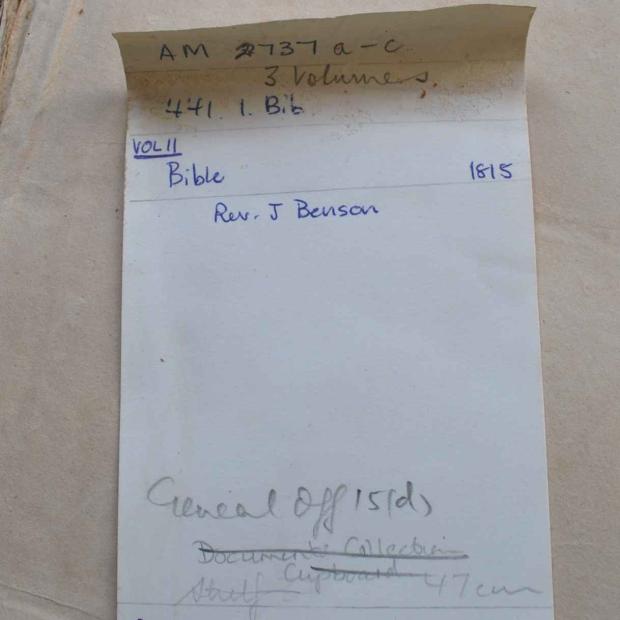 AM 2737 a-c
3 Volumes
441. 1. Bib
VOL II
Bible 1815
Rev. J Benson
General Off 15(d)
Documents Collection
Cupboard
Shelf 47cm